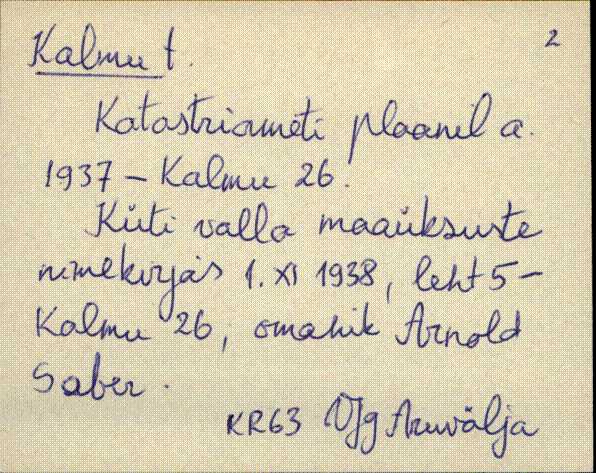 2
Kalmu t.
Katastriameti plaanil a.
1937 – Kalmu 26.
Küti valla maaüksuste
nimekirjas 1. XI 1938, leht 5 –
Kalmu 26, omanik Arnold
Saber.
KR63 VJg Aruvälja